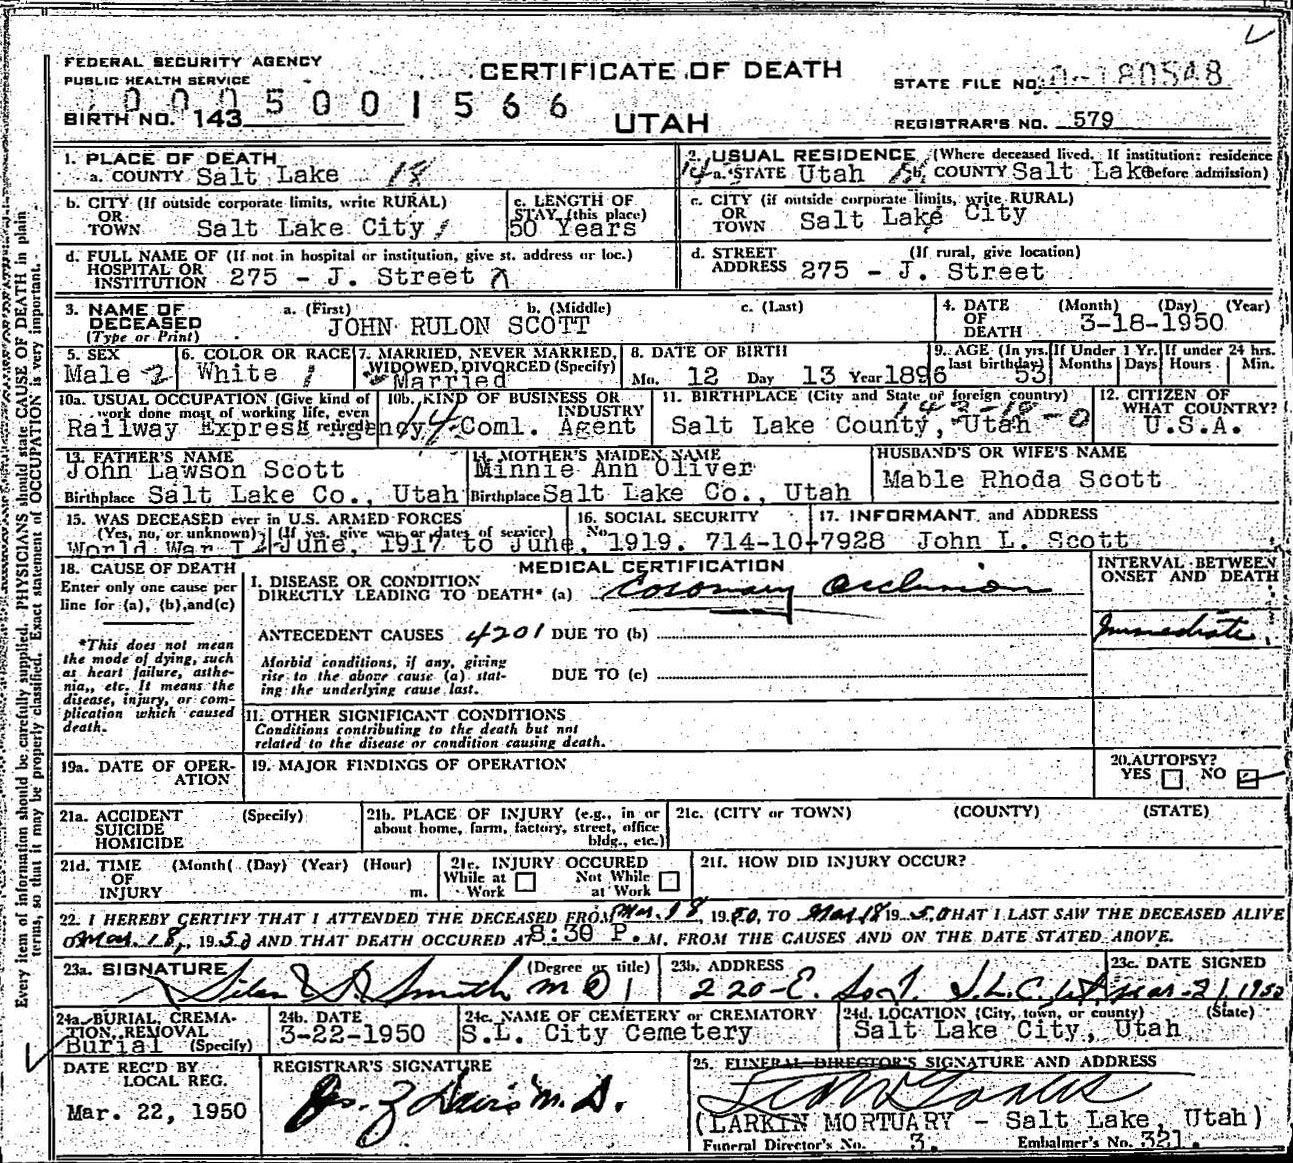 FEDERAL SECURITY AGENCY
PUBLIC HEALTH SERVICE
CERTIFICATE OF DEATH
STATE FILE NO. 0-180548
0005001566
BIRTH NO. 143
UTAH
REGISTRAR'S NO. 579
1. PLACE OF DEATH
a. COUNTY Salt Lake 18
2. USUAL RESIDENCE (Where deceased lived. If institution: residence
a. STATE Utah b. COUNTY Salt Lake before admission)
b. CITY (If outside corporate limits, write RURAL)
OR
TOWN Salt Lake City
c. LENGTH OF
STAY (this place)
50 Years
c. CITY (if outside corporate limits, write RURAL)
OR
TOWN Salt Lake City
d. FULL NAME OF (If not in hospital or institution, give st. address or loc.)
HOSPITAL OR
INSTITUTION 275 - J. Street
d. STREET (If rural, give location)
ADDRESS 275 - J. Street
3. NAME OF DECEASED (Type or Print)
a. (First) b. (Middle) c. (Last)
JOHN RULON SCOTT
4. DATE OF DEATH (Month) (Day) (Year)
3-18-1950
5. SEX
Male 2
6. COLOR OR RACE
White 1
7. MARRIED, NEVER MARRIED,
WIDOWED, DIVORCED (Specify)
Married
8. DATE OF BIRTH
Mo. 12 Day 13 Year 1896
9. AGE (In yrs. last birthday) 53
If Under 1 Yr. Months Days
If under 24 hrs. Hours Min.
10a. USUAL OCCUPATION (Give kind of
work done most of working life, even
if retired)
Railway Express Agency
10b. KIND OF BUSINESS OR
INDUSTRY
14 Coml. Agent
11. BIRTHPLACE (City and State or foreign country)
143-18-0
Salt Lake County, Utah
12. CITIZEN OF
WHAT COUNTRY?
U.S.A.
13. FATHER'S NAME
John Lawson Scott
Birthplace Salt Lake Co., Utah
14. MOTHER'S MAIDEN NAME
Minnie Ann Oliver
Birthplace Salt Lake Co., Utah
HUSBAND'S OR WIFE'S NAME
Mable Rhoda Scott
15. WAS DECEASED ever in U.S. ARMED FORCES
(Yes, no, or unknown) (If yes, give war or dates of service)
World War I 2 June, 1917 to June, 1919.
16. SOCIAL SECURITY
No. 714-10-7928
17. INFORMANT and ADDRESS
John L. Scott
18. CAUSE OF DEATH
Enter only one cause per
line for (a), (b), and (c)
MEDICAL CERTIFICATION
INTERVAL BETWEEN
ONSET AND DEATH
I. DISEASE OR CONDITION
DIRECTLY LEADING TO DEATH* (a) Coronary Occlusion
Immediate
ANTECEDENT CAUSES 4201 DUE TO (b)
Morbid conditions, if any, giving
rise to the above cause (a) stat-
ing the underlying cause last.
DUE TO (c)
*This does not mean
the mode of dying, such
as heart failure, asthe-
nia, etc. It means the
disease, injury, or com-
plication which caused
death.
II. OTHER SIGNIFICANT CONDITIONS
Conditions contributing to the death but not
related to the disease or condition causing death.
19a. DATE OF OPER-
ATION
19. MAJOR FINDINGS OF OPERATION
20. AUTOPSY?
YES NO
21a. ACCIDENT (Specify)
SUICIDE
HOMICIDE
21b. PLACE OF INJURY (e.g., in or
about home, farm, factory, street, office
bldg., etc.)
21c. (CITY or TOWN) (COUNTY) (STATE)
21d. TIME (Month( (Day) (Year) (Hour)
OF
INJURY m.
21e. INJURY OCCURED
While at Work Not While at Work
21f. HOW DID INJURY OCCUR?
22. I HEREBY CERTIFY THAT I ATTENDED THE DECEASED FROM Mar. 18, 1950, TO Mar 18 1950 THAT I LAST SAW THE DECEASED ALIVE
ON Mar. 18, 1950 AND THAT DEATH OCCURED AT 8:30 P. M. FROM THE CAUSES AND ON THE DATE STATED ABOVE.
23a. SIGNATURE (Degree or title)
Silas S. Smith M D 1
23b. ADDRESS
220-E. So. T. S.L.C. Ut
23c. DATE SIGNED
Mar-21, 1950
24a. BURIAL, CREMA-
TION, REMOVAL
Burial (Specify)
24b. DATE
3-22-1950
24c. NAME OF CEMETERY or CREMATORY
S.L. City Cemetery
24d. LOCATION (City, town, or county) (State)
Salt Lake City, Utah
DATE REC'D BY
LOCAL REG.
Mar. 22, 1950
REGISTRAR'S SIGNATURE
Davis M.D.
25. FUNERAL DIRECTOR'S SIGNATURE AND ADDRESS
(LARKIN MORTUARY - Salt Lake, Utah)
Funeral Director's No. 3. Embalmer's No. 321.
Every item of information should be carefully supplied. PHYSICIANS should state CAUSE OF DEATH in plain
terms, so that it may be properly classified. Exact statement of OCCUPATION is very important.